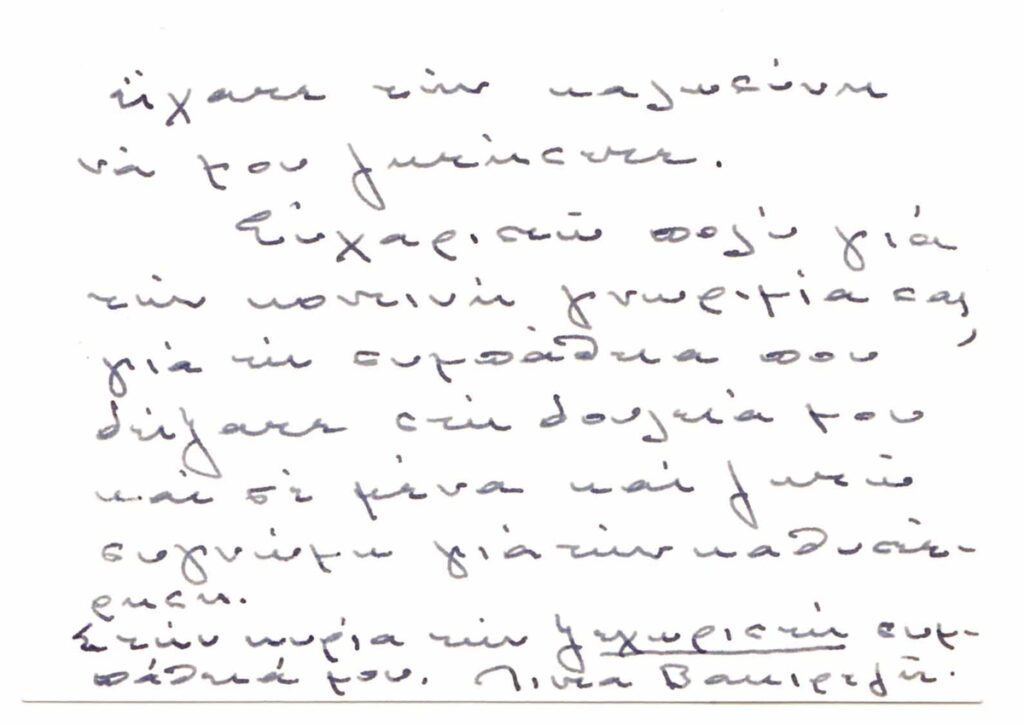 εἴχατε τὴν καλωσύνη
νὰ μου ζητήσετε.
Εὐχαριστῶ πολὺ γιὰ
τὴν κοντινὴ γνωριμία σας,
γιὰ τὴ συμπάθεια που
δείξατε στὴ δουλειά μου
καὶ σὲ μένα καὶ ζητῶ
συγνώμη γιὰ τὴν καθυστέ-
ρηση.
Στὴν κυρία τὴν ξεχωριστὴ συμ-
πάθειά μου.